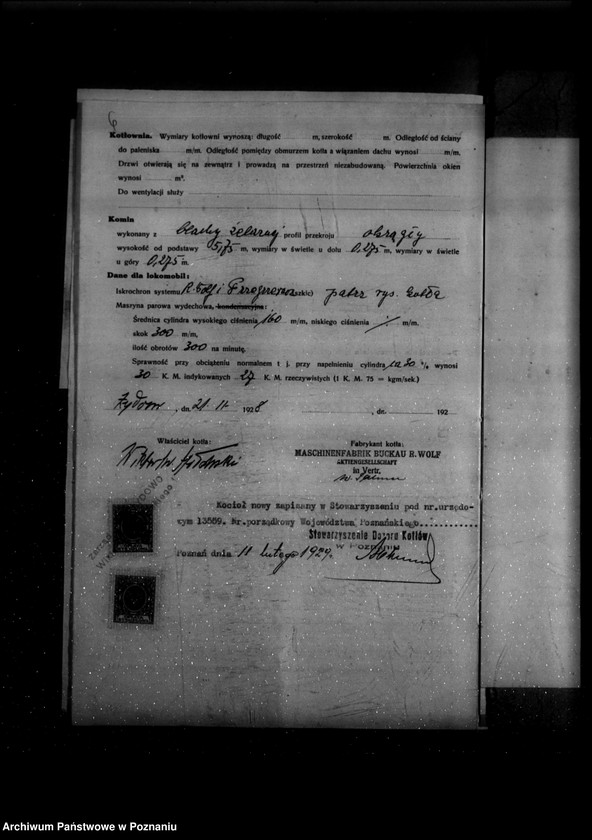 6
Kotłownia. Wymiary kotłowni wynoszą: długość m, szerokość m. Odległość od ściany
do paleniska m/m. Odległość pomiędzy obmurzem kotła a wiązaniem dachu wynosi m/m.
Drzwi otwierają się na zewnątrz i prowadzą na przestrzeń niezabudowaną. Powierzchnia okien
wynosi m².
Do wentylacji służy
Komin
wykonany z blachy żelaznej profil przekroju okrągły
wysokość od podstawy 5,75 m, wymiary w świetle u dołu 0,275 m, wymiary w świetle
u góry 0,275 m.
Dane dla lokomobil:
Iskrochron systemu R. Wolf i
Maszyna parowa wydechowa, kondensacyjna:
Średnica cylindra wysokiego ciśnienia 160 m/m, niskiego ciśnienia m/m.
skok 300 m/m,
ilość obrotów 300 na minutę.
Sprawność przy obciążeniu normalnem t j. przy napełnieniu cylindra ca 30 % wynosi
30 K. M. indykowanych 27 K. M. rzeczywistych (1 K. M. 75 = kgm/sek.)
, dn. 21 II 1928 , dn. 192
Właściciel kotła: Fabrykant kotła:
MASCHINENFABRIK BUCKAU R. WOLF
AKTIENGESELLSCHAFT
in Vertr.
Kocioł nowy zapisany w Stowarzyszeniu pod nr.urzędo-
wym 13559. Nr.porządkowy Województwa Poznańskiego
Stowarzyszenie Dozoru Kotłów
w Poznaniu
Poznań dnia 11 lutego 1929.
Archiwum Państwowe w Poznaniu